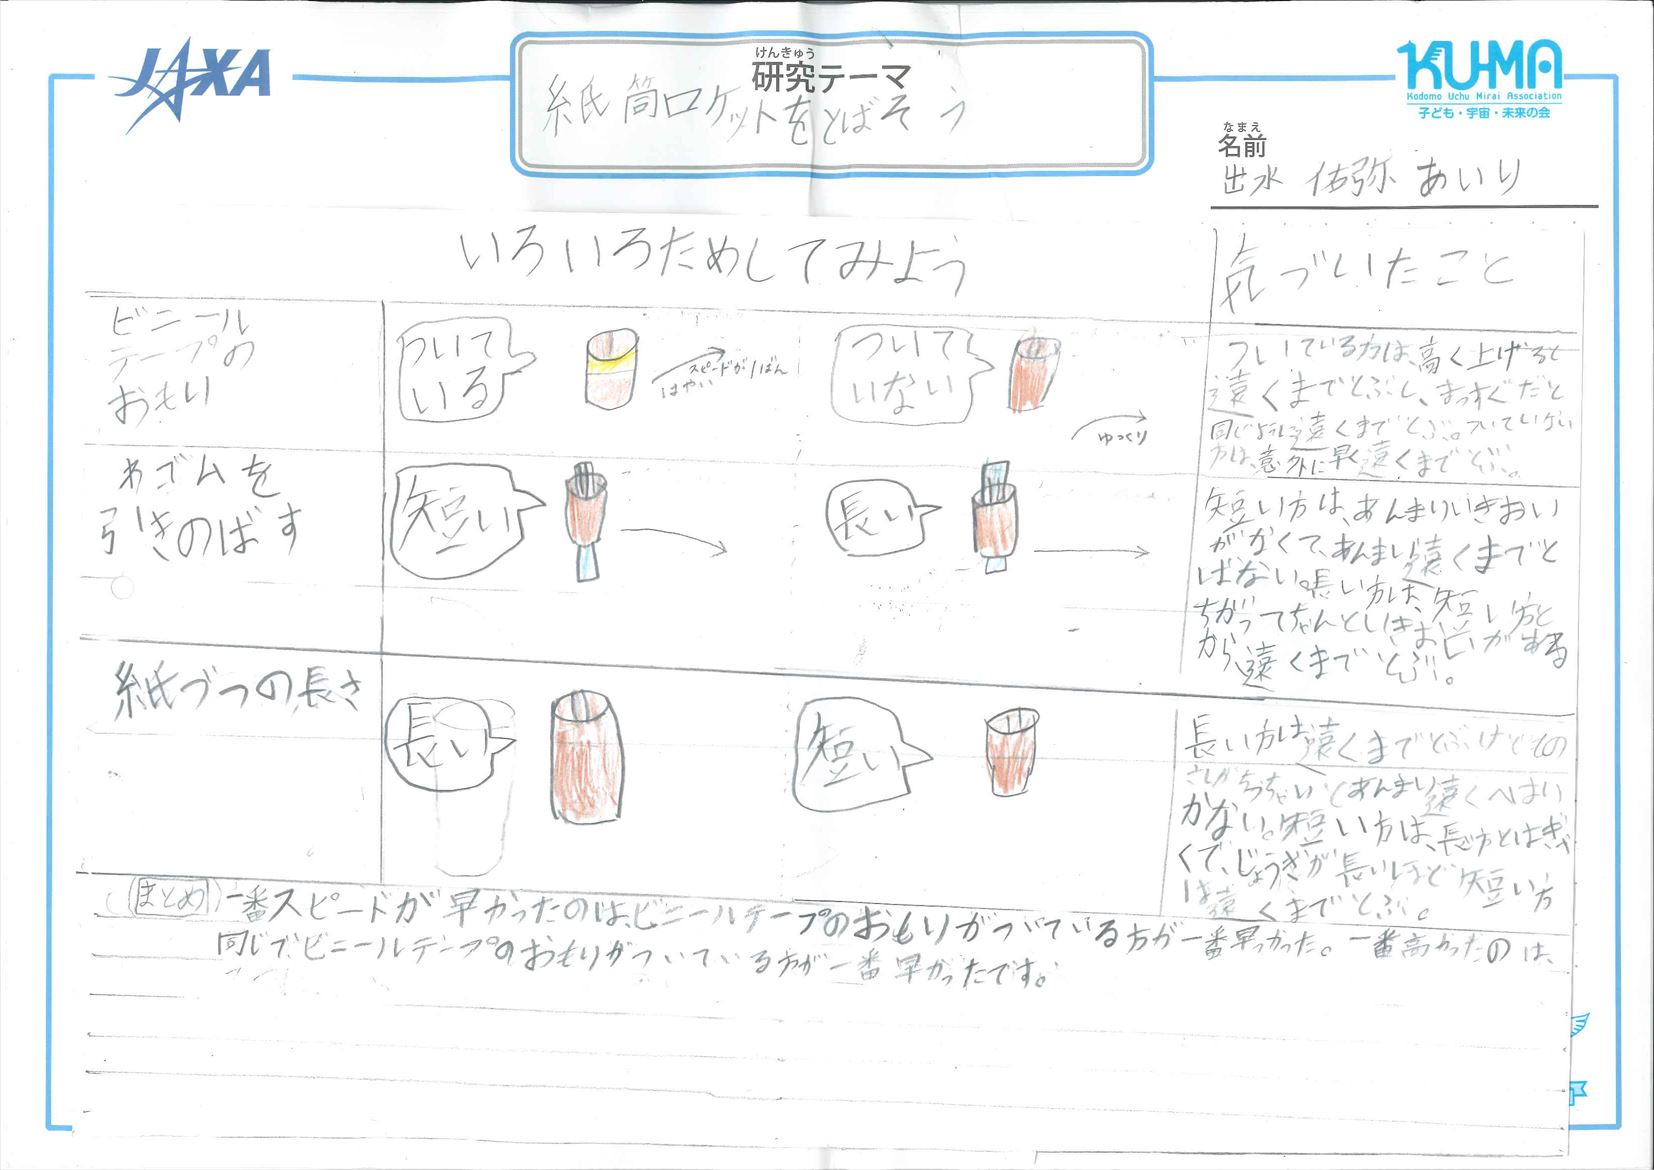 JAXA
けんきゅう
研究テーマ
紙筒ロケットをとばそう
KU-MA
Kodomo Uchu Mirai Association
子ども・宇宙・未来の会
なまえ
名前
出水 佑弥 あいり
いろいろためしてみよう
気づいたこと
ビニール
テープの
おもり
ついて
いる
スピードが1ばん
はやい
ついて
いない
ゆっくり
ついている方は、高く上げると
遠くまでとぶし、まっすぐだと
同じように遠くまでとぶ。ついていない
方は、意外に早く遠くまでとぶ。
わゴムを
引きのばす
短い
長い
短い方は、あんまりいきおい
がなくて、あんまり遠くまでと
ばない。長い方は、短い方と
ちがってちゃんといきおいがある
から、遠くまでとぶ。
紙づつの長さ
長い
短い
長い方は遠くまでとぶけどその
さしがちっちゃい(あんまり遠くへはい
かない。短い方は、長い方とはぎゃ
くで、じょうぎが長いほど短い方
は遠くまでとぶ。
まとめ 一番スピードが早かったのは、ビニールテープのおもりがついている方が一番早かった。一番高かったのは、
同じで、ビニールテープのおもりがついている方が一番早かったです。